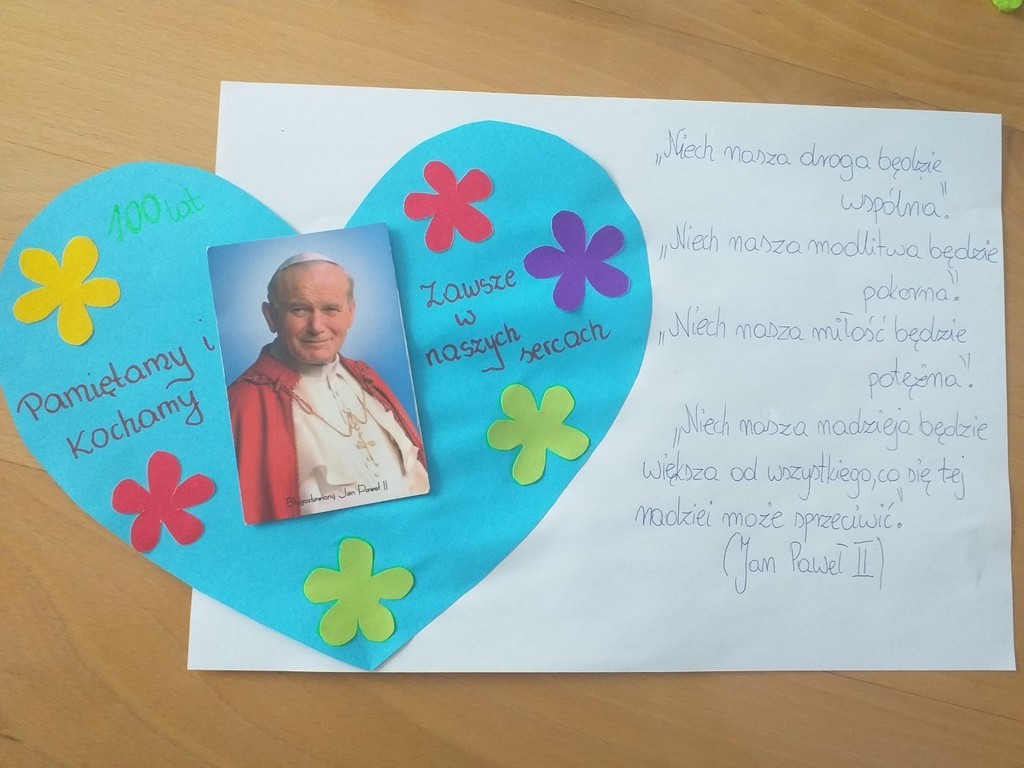 100 lat
Pamiętamy i
Kochamy
Zawsze
w
naszych sercach
Błogosławiony Jan Paweł II
„Niech nasza droga będzie
wspólna".
„Niech nasza modlitwa będzie
pokorna."
„Niech nasza miłość będzie
potężna".
„Niech nasza nadzieja będzie
większa od wszystkiego,co się tej
nadziei może sprzeciwić."
(Jan Paweł II)